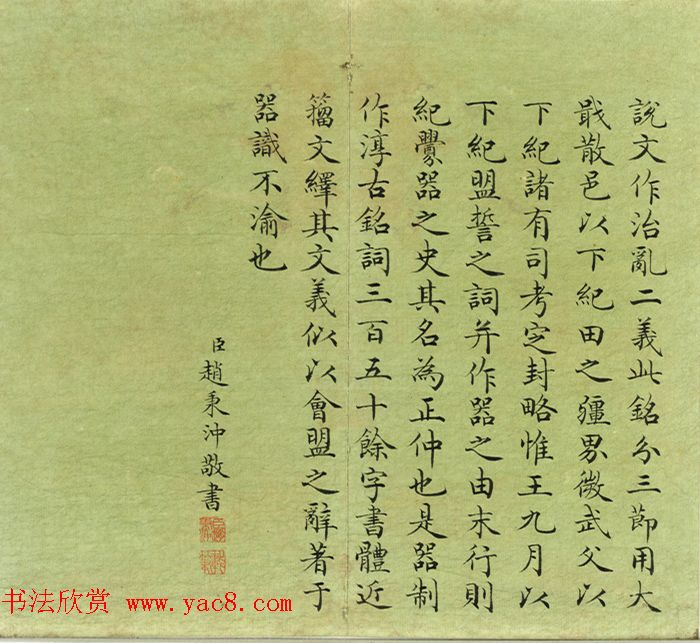 說文作治亂二義此銘分三節用大
散邑以下紀田之疆界微武父以
下紀諸有司考定封略惟王九月以
下紀盟誓之詞并作器之由末行則
紀釁器之史其名為正仲也是器制
作淳古銘詞三百五十餘字書體近
籀文繹其文義似以會盟之辭著于
器識不渝也
臣趙秉沖敬書
书法欣赏 www.yac8.com